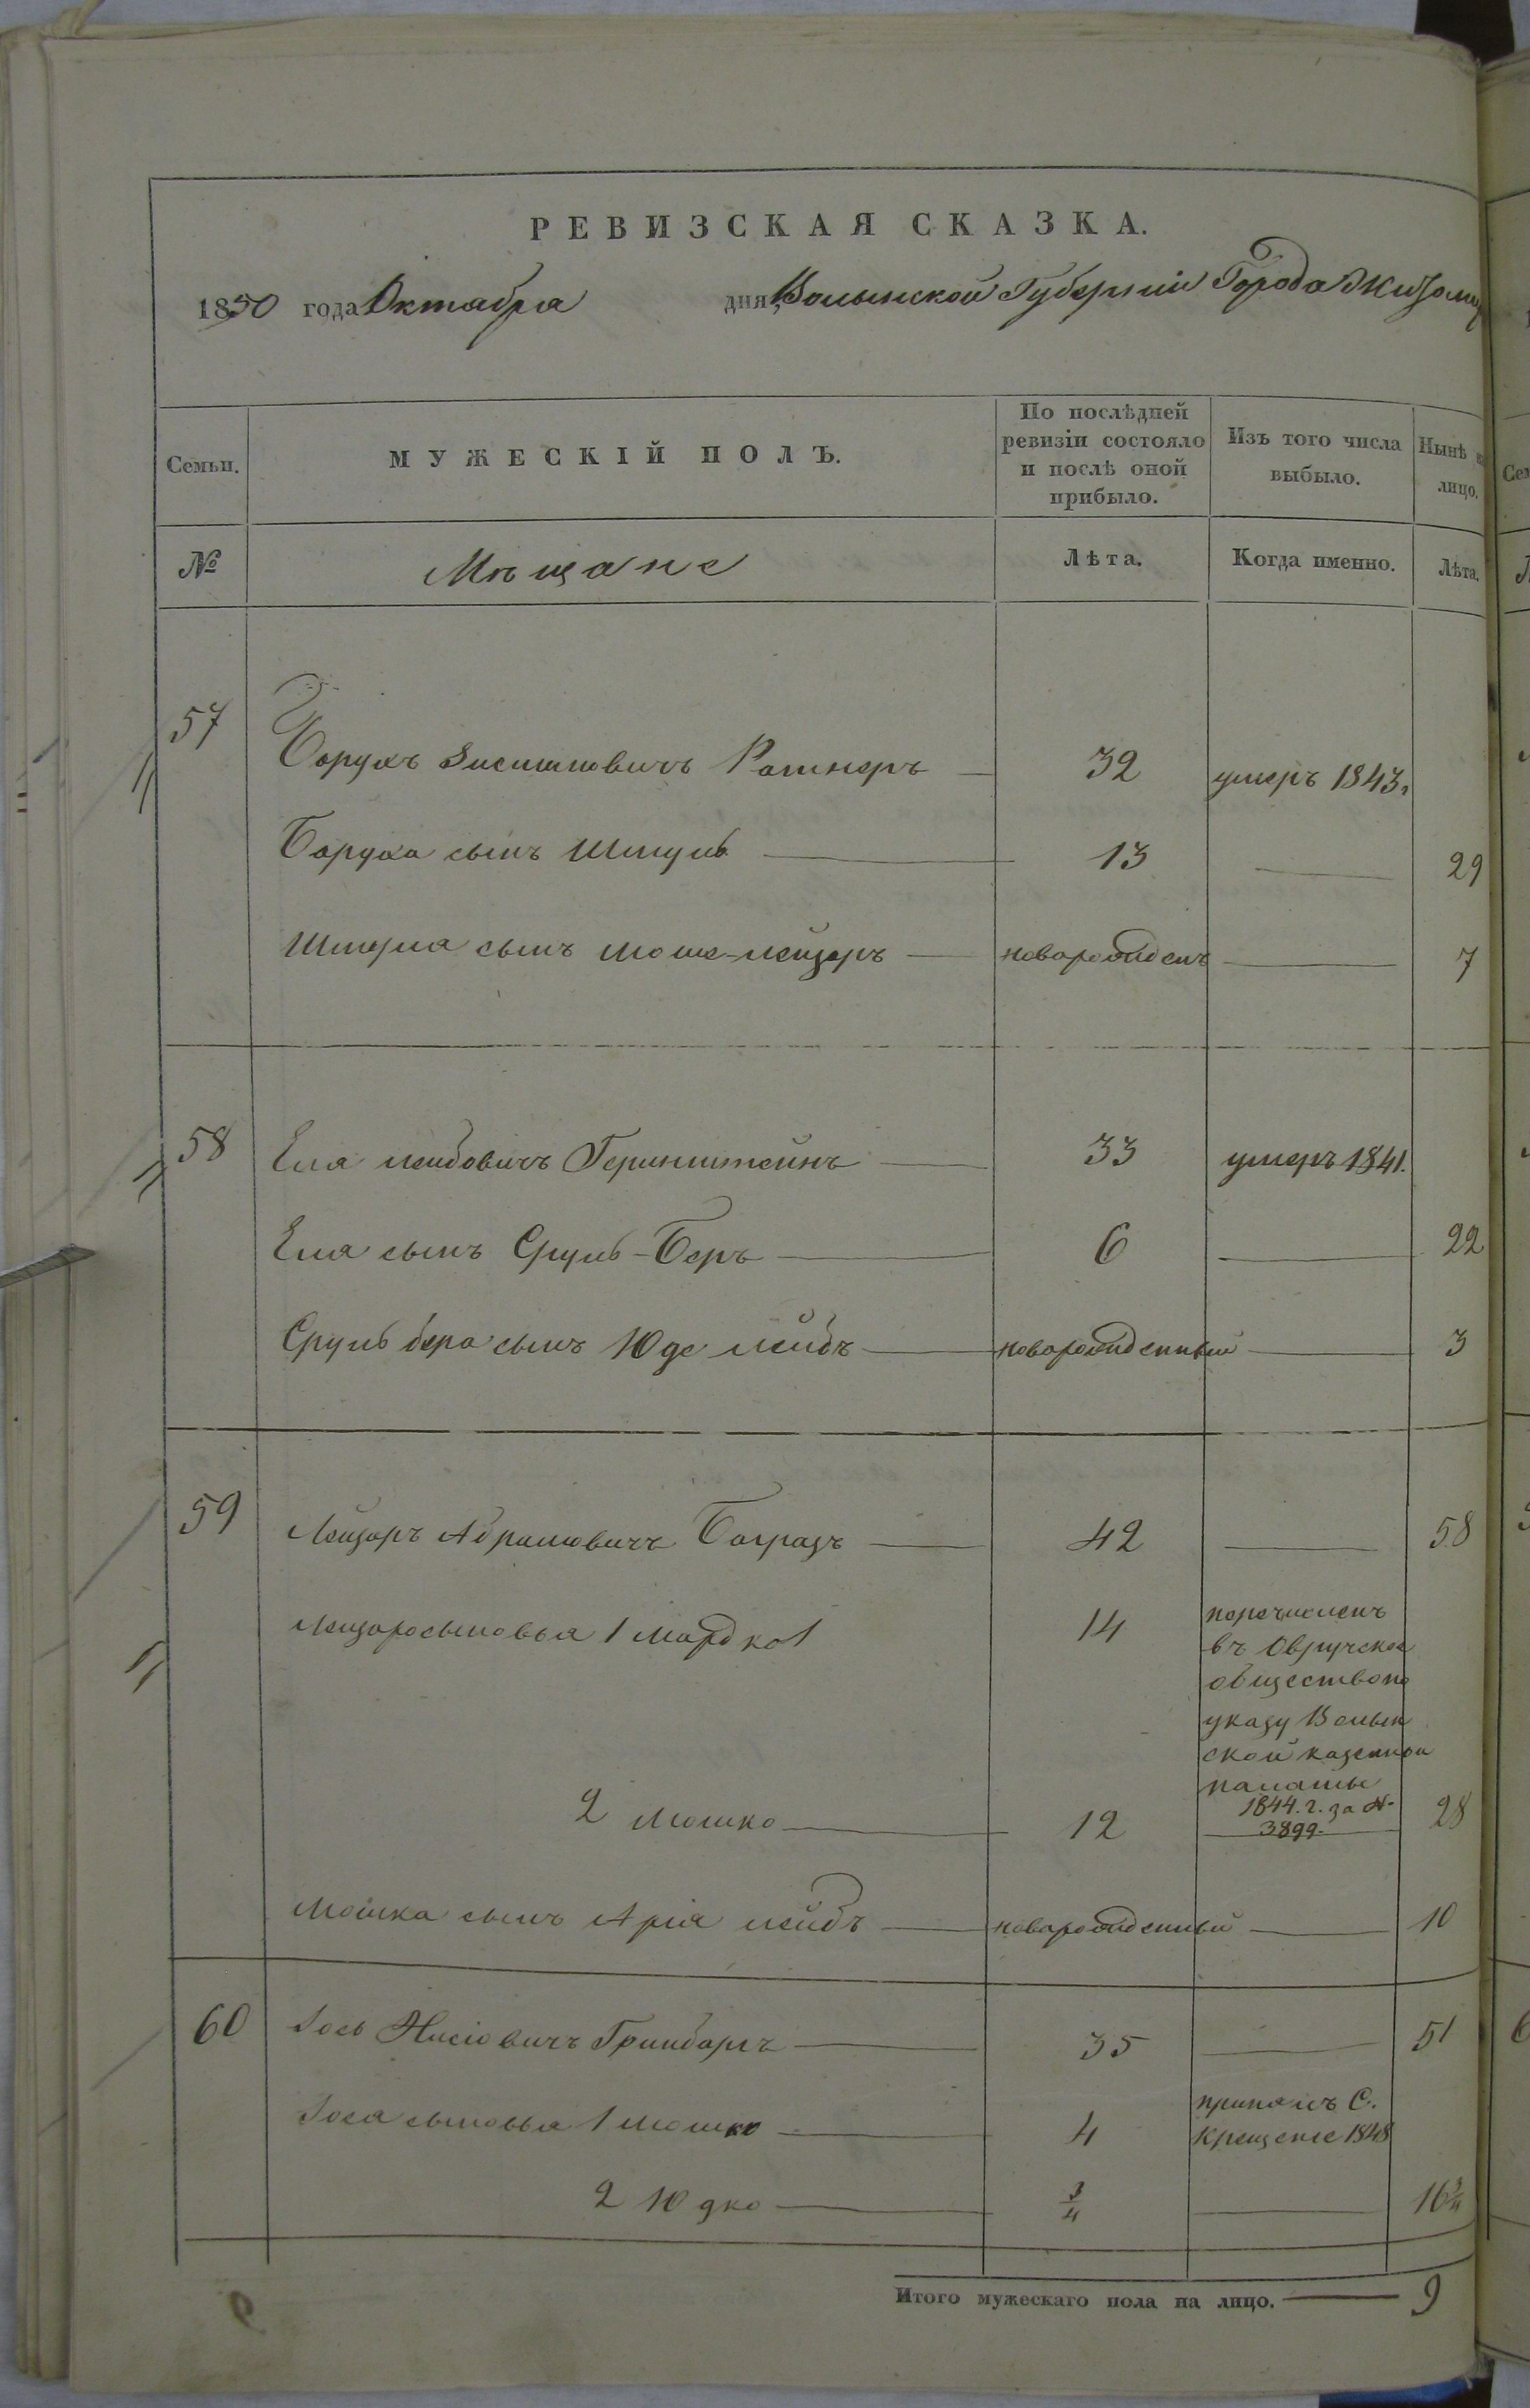 РЕВИЗСКАЯ СКАЗКА.
1850 года Октабра дня, Волынской Губерніи Города Житоми
Семьи. МУЖЕСКІЙ ПОЛЪ. По послѣдней ревизіи состояло и послѣ оной прибыло. Изъ того числа выбыло. Нынѣ на лицо.
№ Мѣщане Лѣта. Когда именно. Лѣта.
57 Борухъ Зисмановичъ Ратнеръ 32 умеръ 1843.
Боруха сынъ Шмуль 13 29
Шмуля сынъ Моше-Лейзеръ новарожденъ 7
58 Еля Лейбовичъ Геринштейнъ 33 умеръ 1841.
Еля сынъ Сруль-Беръ 6 22
Сруль бера сынъ Юде Лейбъ новарожденный 3
59 Лейзоръ Абрамовичъ Баградъ 42 58
Лейзора сыновья 1 Мордко 14 перечисленъ
въ Овручское
общество по
указу Волын
ской казенной
палаты
1844. г. за №
3899.
2 Мошко 12 28
Мошка сынъ Арія Лейбъ новарожденный 10
60 Іось Нисіовичъ Гринбаргъ 35 51
Іося сыновья 1 Мошко 4 принялъ С.
крещеніе 1848
2 Юдко 3/4 16 3/4
Итого мужескаго пола на лицо. 9